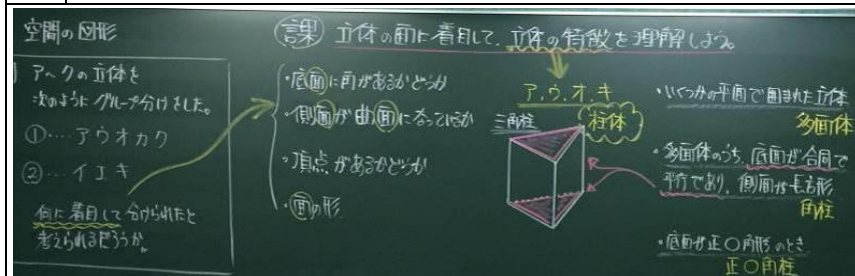 空間の図形
ア～クの立体を
次のようにグループ分けをした。
①…アウオカク
②…イエキ
何に着目して分けられたと
考えられるだろうか。
課 立体の面に着目して、立体の特徴を理解しよう。
・底面に角があるかどうか
・側面が曲面になっているか
・頂点があるかどうか
・面の形
ア,ウ,オ,キ
三角柱
柱体
・いくつかの平面で囲まれた立体
多面体
・多面体のうち、底面が合同で
平行であり、側面が長方形
角柱
・底面が正〇角形のとき
正〇角柱